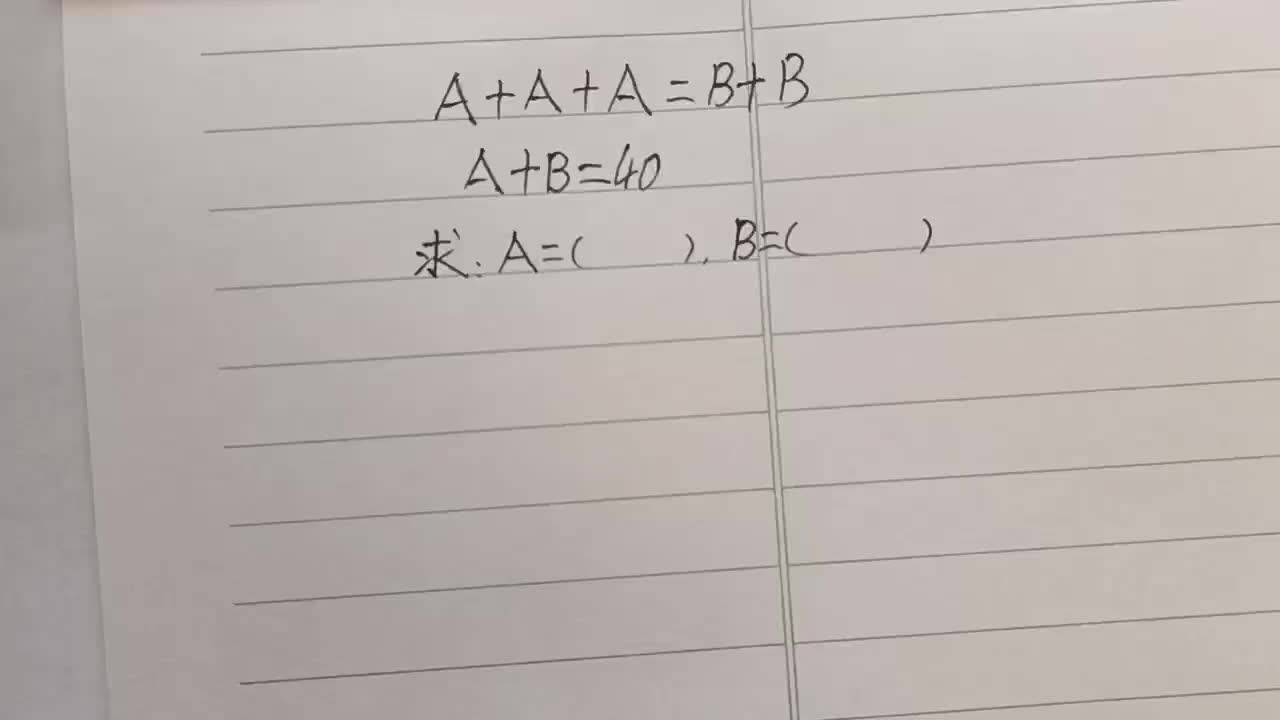 A+A+A=B+B
A+B=40
求:A=(    ),B=(    )